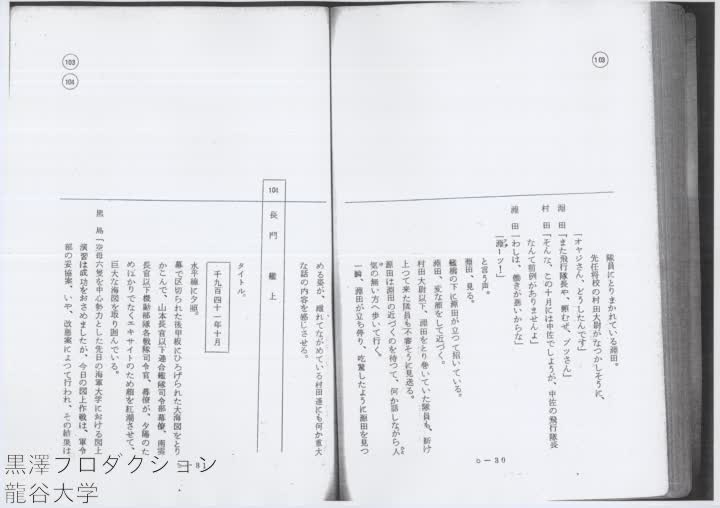 103
隊員にとりまかれている淵田。
先任将校の村田大尉がなつかしそうに、
「オヤジさん、どうしたんです」
淵田「また飛行隊長や、頼むぜ、ブッさん」
村田「そんな、この十月には中佐でしょうが、中佐の飛行隊長
なんて前例がありませんよ」
淵田「わしは、働きが悪いからな」
「淵ーッ！」
と言う声。
淵田、見る。
艦橋の下に源田が立つて招いている。
淵田、変な顔をして近づく。
村田大尉以下、淵田をとり巻いていた隊員も、新け
上つて来た隊員も不審そうに見送る。
源田は淵田の近づくのを待つて、何か話しながら人
気の無い方へ歩いて行く。
一瞬、淵田が立ち停り、吃驚したように源田を見つ
C-30
103
104
める姿が、離れてながめている村田達にも何か重大
な話の内容を感じさせる。
104 長門 艦上
タイトル。
千九百四十一年十月
水平線に夕照。
幕で区切られた後甲板にひろげられた大海図をとり
かこんで、山本長官以下連合艦隊司令部幕僚、南雲
長官以下機動部隊各戦隊司令官、幕僚が、夕陽のた
めばかりでなくエキサイトのため顔を紅潮させて、
巨大な海図を取り囲んでいる。
黒島「空母六隻を中心勢力とした先日の海軍大学における図上
演習は成功をおさめましたが、今日の図上作戦は、軍令
部の妥協案、いや、改悪案によつて行われ、その結果は
C-31
黒澤プロダクション
龍谷大学